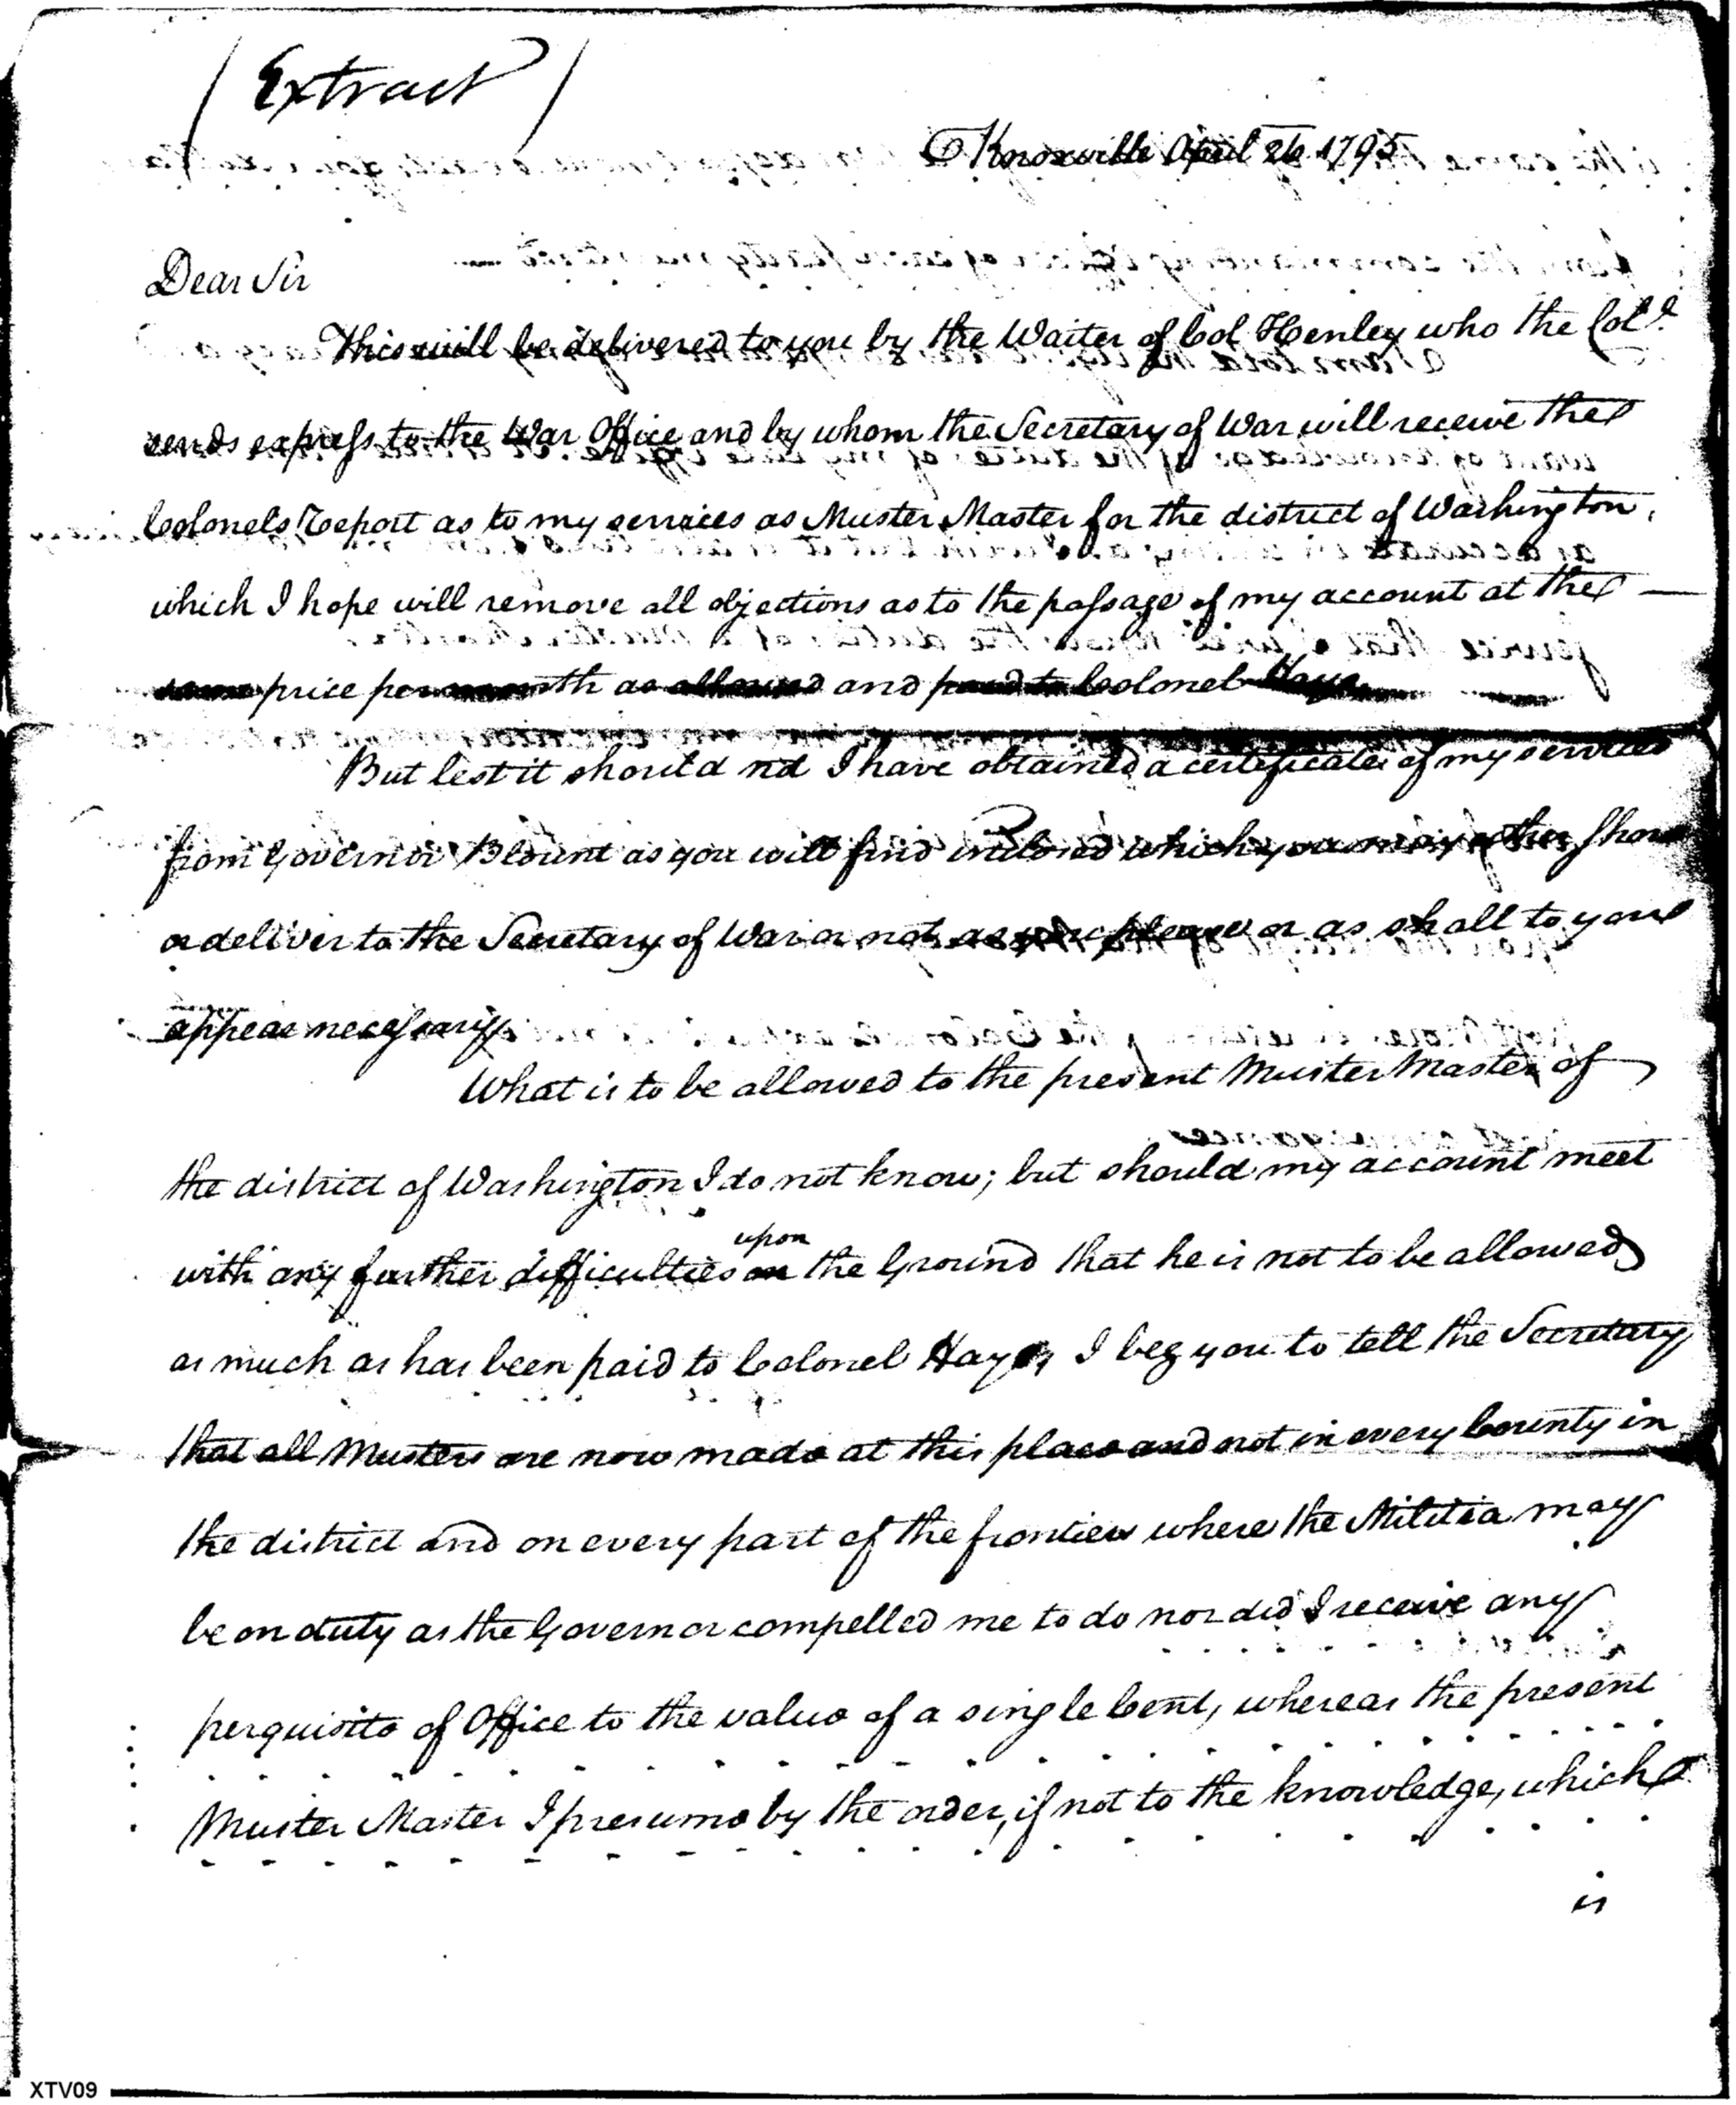 / Extract /
Knoxville April 26 1795
Dear Sir
This will be delivered to you by the Waiter of Col Henley who the Col.
sends express to the War Office and by whom the Secretary of War will receive the
Colonels Report as to my services as Muster Master for the district of Washington,
which I hope will remove all objections as to the passage of my account at the —
same price per month as allowed and paid to Colonel Hays
But lest it should not I have obtained a certificate of my services
from Governor Blount as you will find inclosed which you may either shew
or deliver to the Secretary of War or not as you please or as shall to you
appear necessary
What is to be allowed to the present Muster Master of
the district of Washington I do not know; but should my account meet
upon
with any further difficulties on the Ground that he is not to be allowed
as much as has been paid to Colonel Hays, I beg you to tell the Secretary
that all Musters are now made at this place and not in every County in
the district and on every part of the frontier where the Militia may
be on duty as the Governor compelled me to do nor did I receive any
perquisite of Office to the value of a single Cent, whereas the present
Muster Master I presume by the order, if not to the knowledge, which
is
XTV09